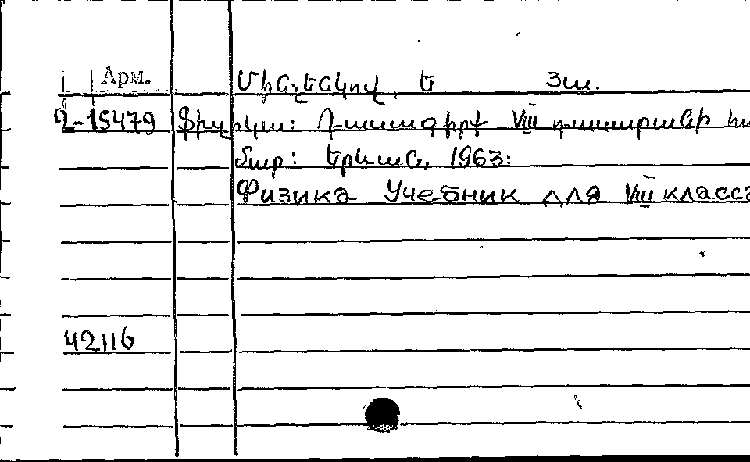 Арм.
Մինչենկով, Ե Յա.
Զ-15479 Ֆիզիկա: Դասագիրք VIII դասարանի հա
մար: Երևան, 1963:
Физика Учебник для VIII класса
42116